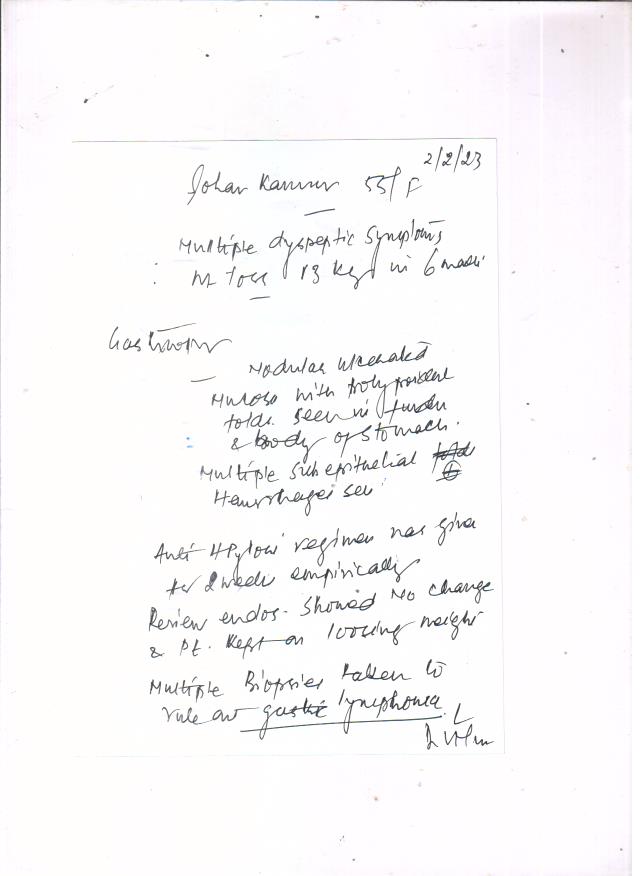 2/2/23
Johar 55/F
Multiple dyspeptic symptoms
wt loss 13 kgs in 6
Nodular ulcerated
Mucosa with
folds seen in
& body of stomach.
Multiple subepithelial
Hemorrhages
Anti HPylori regimen was given
for 2 weeks empirically
Review endos. Showed No change
& Pt. Kept on loosing weight
Multiple Biopsies taken to
rule out gastric lymphoma